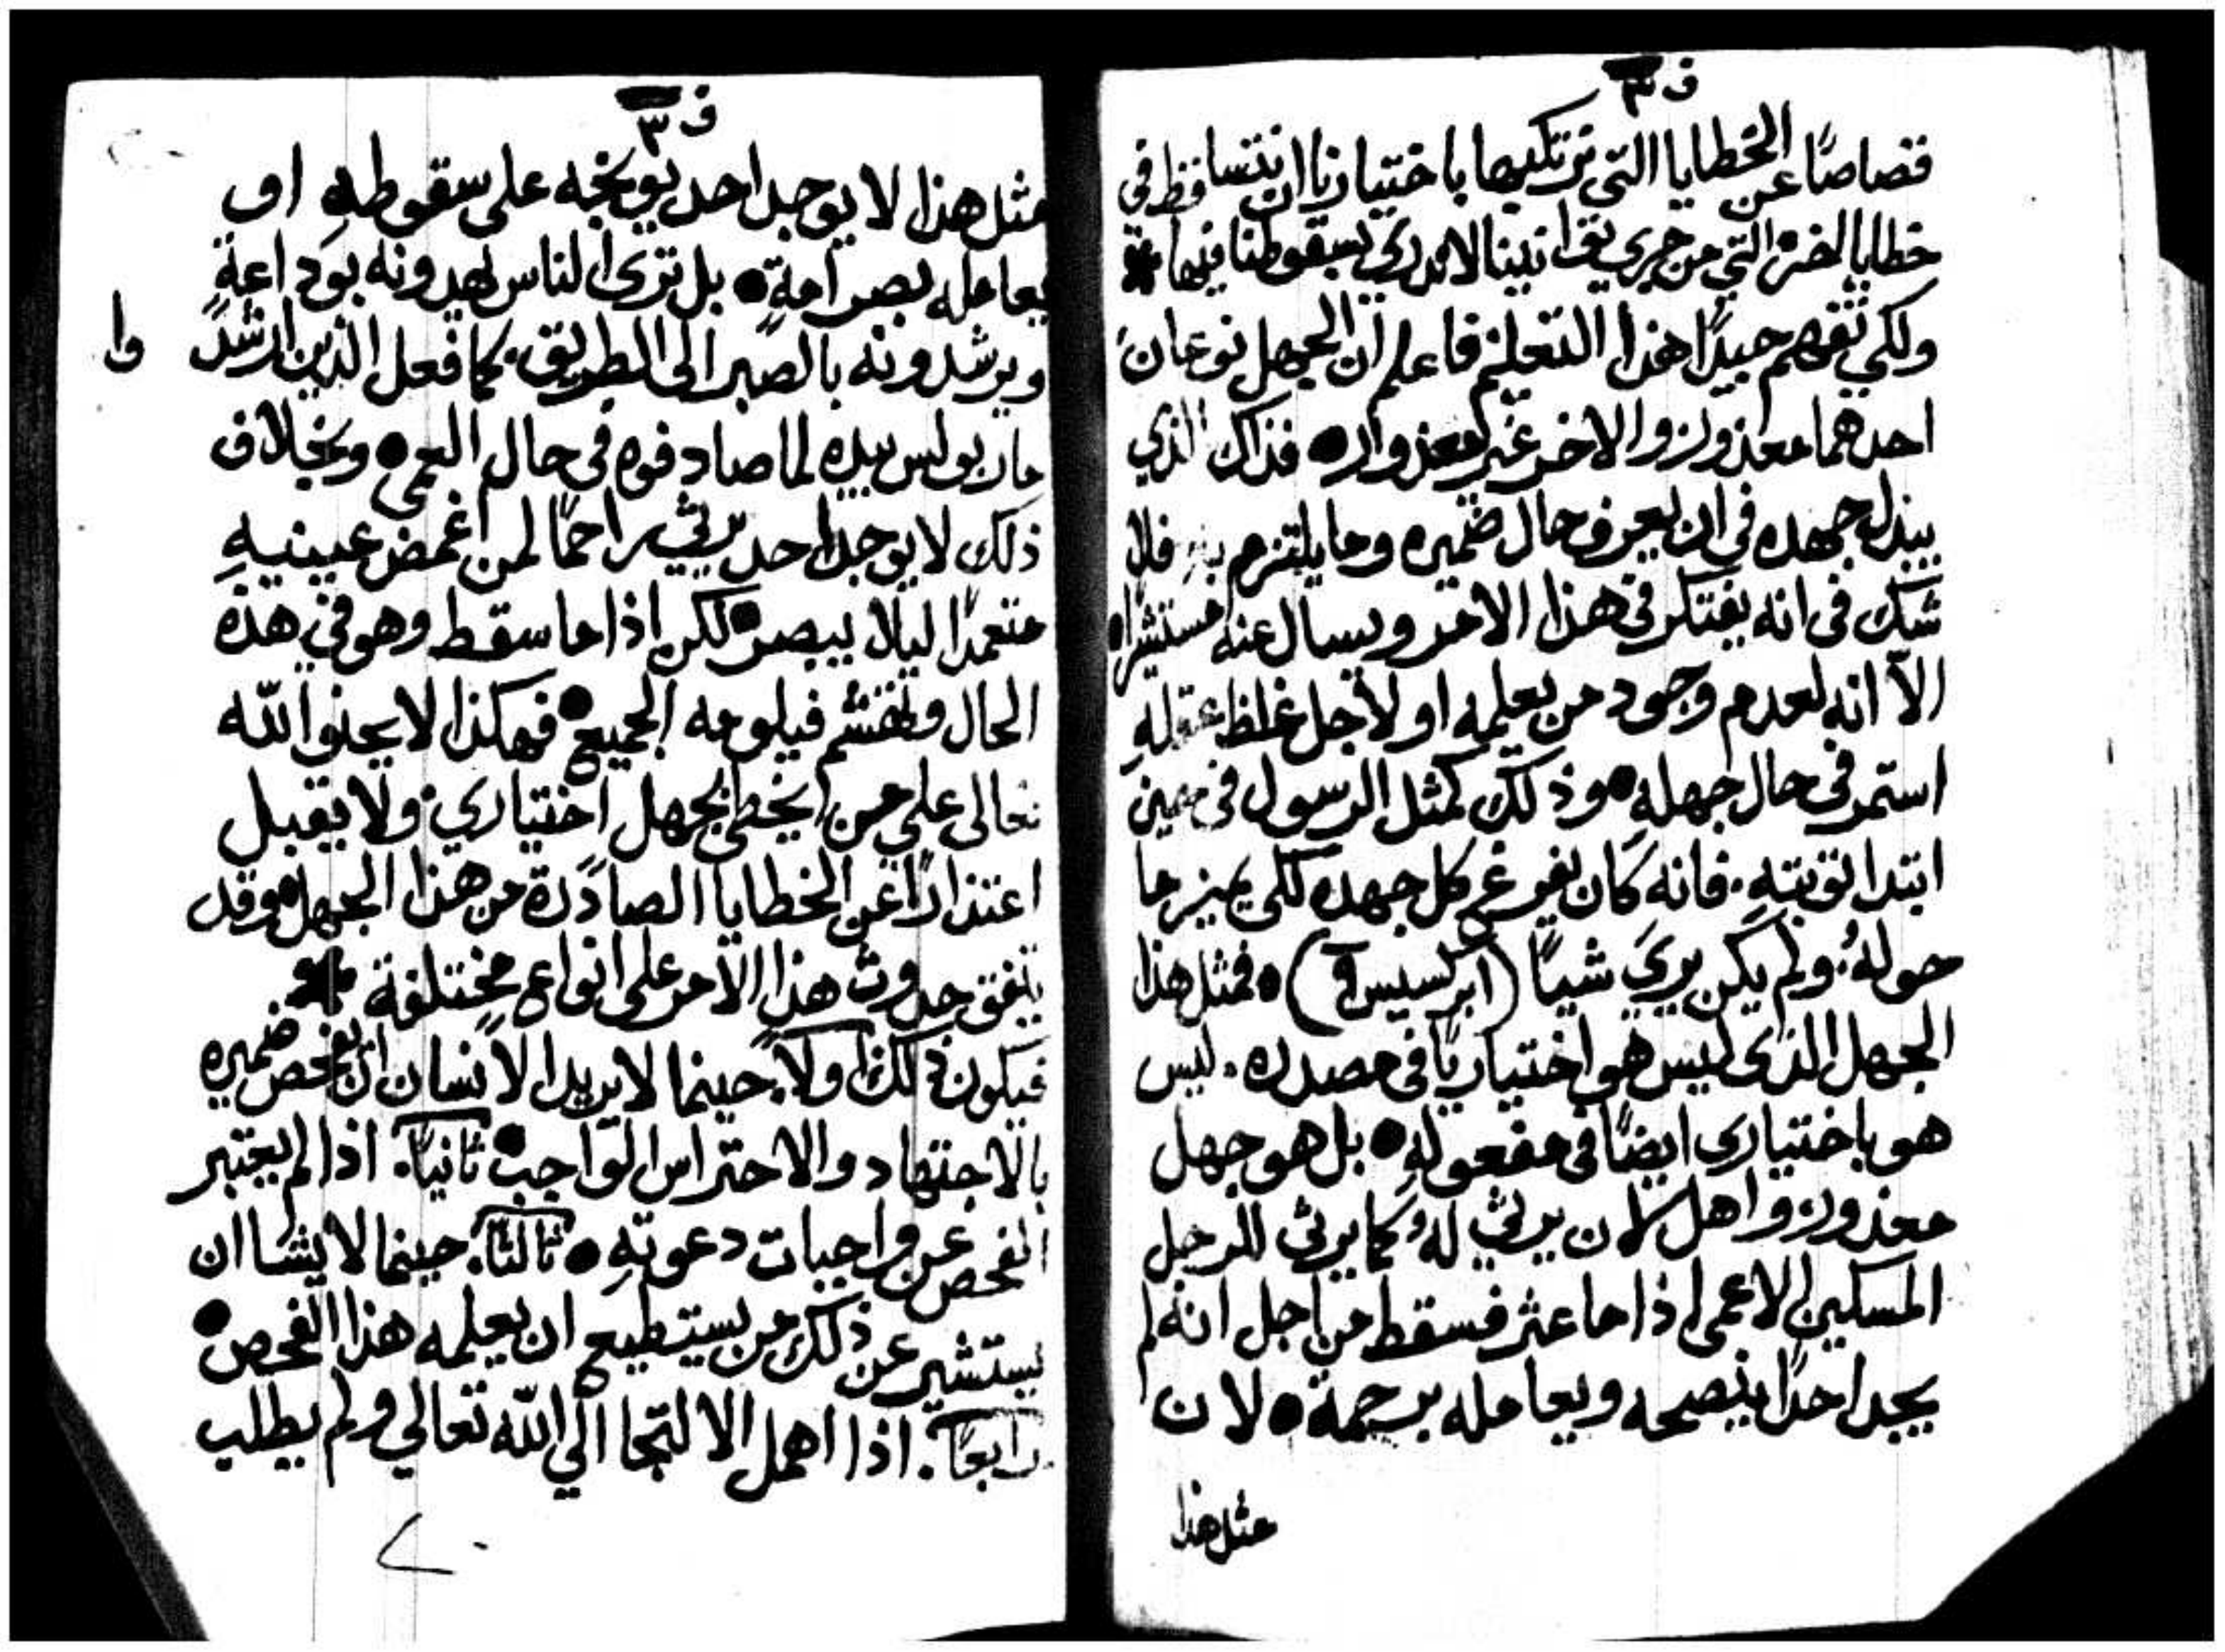 ف ٣
قصاصًا عن الخطايا التي نرتكبها باختيارنا ان نتساقط في
خطايا اخر التي من جري توانينا لا ندري بسقوطنا فيها
ولكي تفهم جيدًا هذا التعليم فاعلم ان الجهل نوعان
احدهما معذور والاخر غير معذور فذاك الذي
يبذل جهده في ان يعرف حال ضميره وما يلتزم به فلا
شك في انه يفتكر في هذا الامر ويسال عنه مستشيرا
الّا انه لعدم وجود من يعلمه او لاجل غلظ عقله
استمر في حال جهله وذلك كمثل الرسول في حين
ابتدا توبته. فانه كان يفرغ كل جهده لكي يميز ما
حوله ولم يكن يري شيًا (ابركسيس ٩) فمثل هذا
الجهل الذي ليس هو اختياريًا في مصدره. ليس
هو باختياري ايضًا في مفعوله بل هو جهل
معذور واهل لان يرثي له كما يرثي للرجل
المسكين الاعمى اذا ما عثر فسقط من اجل انه لم
يجد احدًا ينصحه ويعامله برحمة لان
مثل هذا
ف ٣
مثل هذا لا يوجد احد يوبخه على سقوطهِ او
يعامله بصرامةٍ بل ترى الناس يهدونه بوداعةٍ
ويرشدونه بالصبر الى الطريق. كما فعل الذين ارشدوا
مار بولس بيده لما صادفوه في حال العمى وبخلاف
ذلك لا يوجد احد يرثي راحمًا لمن اغمض عينيهِ
متعمدًا ليلا يبصر لكن اذا ما سقط وهو في هذه
الحال وتهشم فيلومه الجميع فهكذا لا يحنوا الله
تعالى على من يخطي بجهل اختياري ولا يقبل
اعتذارًا عن الخطايا الصادرة من هذا الجهل وقد
يتفق حدوث هذا الامر على انواع مختلفة
فيكون ذلك اولًا. حينما لا يريد الانسان ان يفحص ضميره
بالاجتهاد والاحتراس الواجب ثانيًا. اذا لم يختبر
الفحص عن واجبات دعوتهِ ثالثًا. حينما لا يشا ان
يستشير عن ذلك من يستطيع ان يعلمه هذا الفحص
رابعًا. اذا اهمل الالتجا الي الله تعالي ولم يطلب